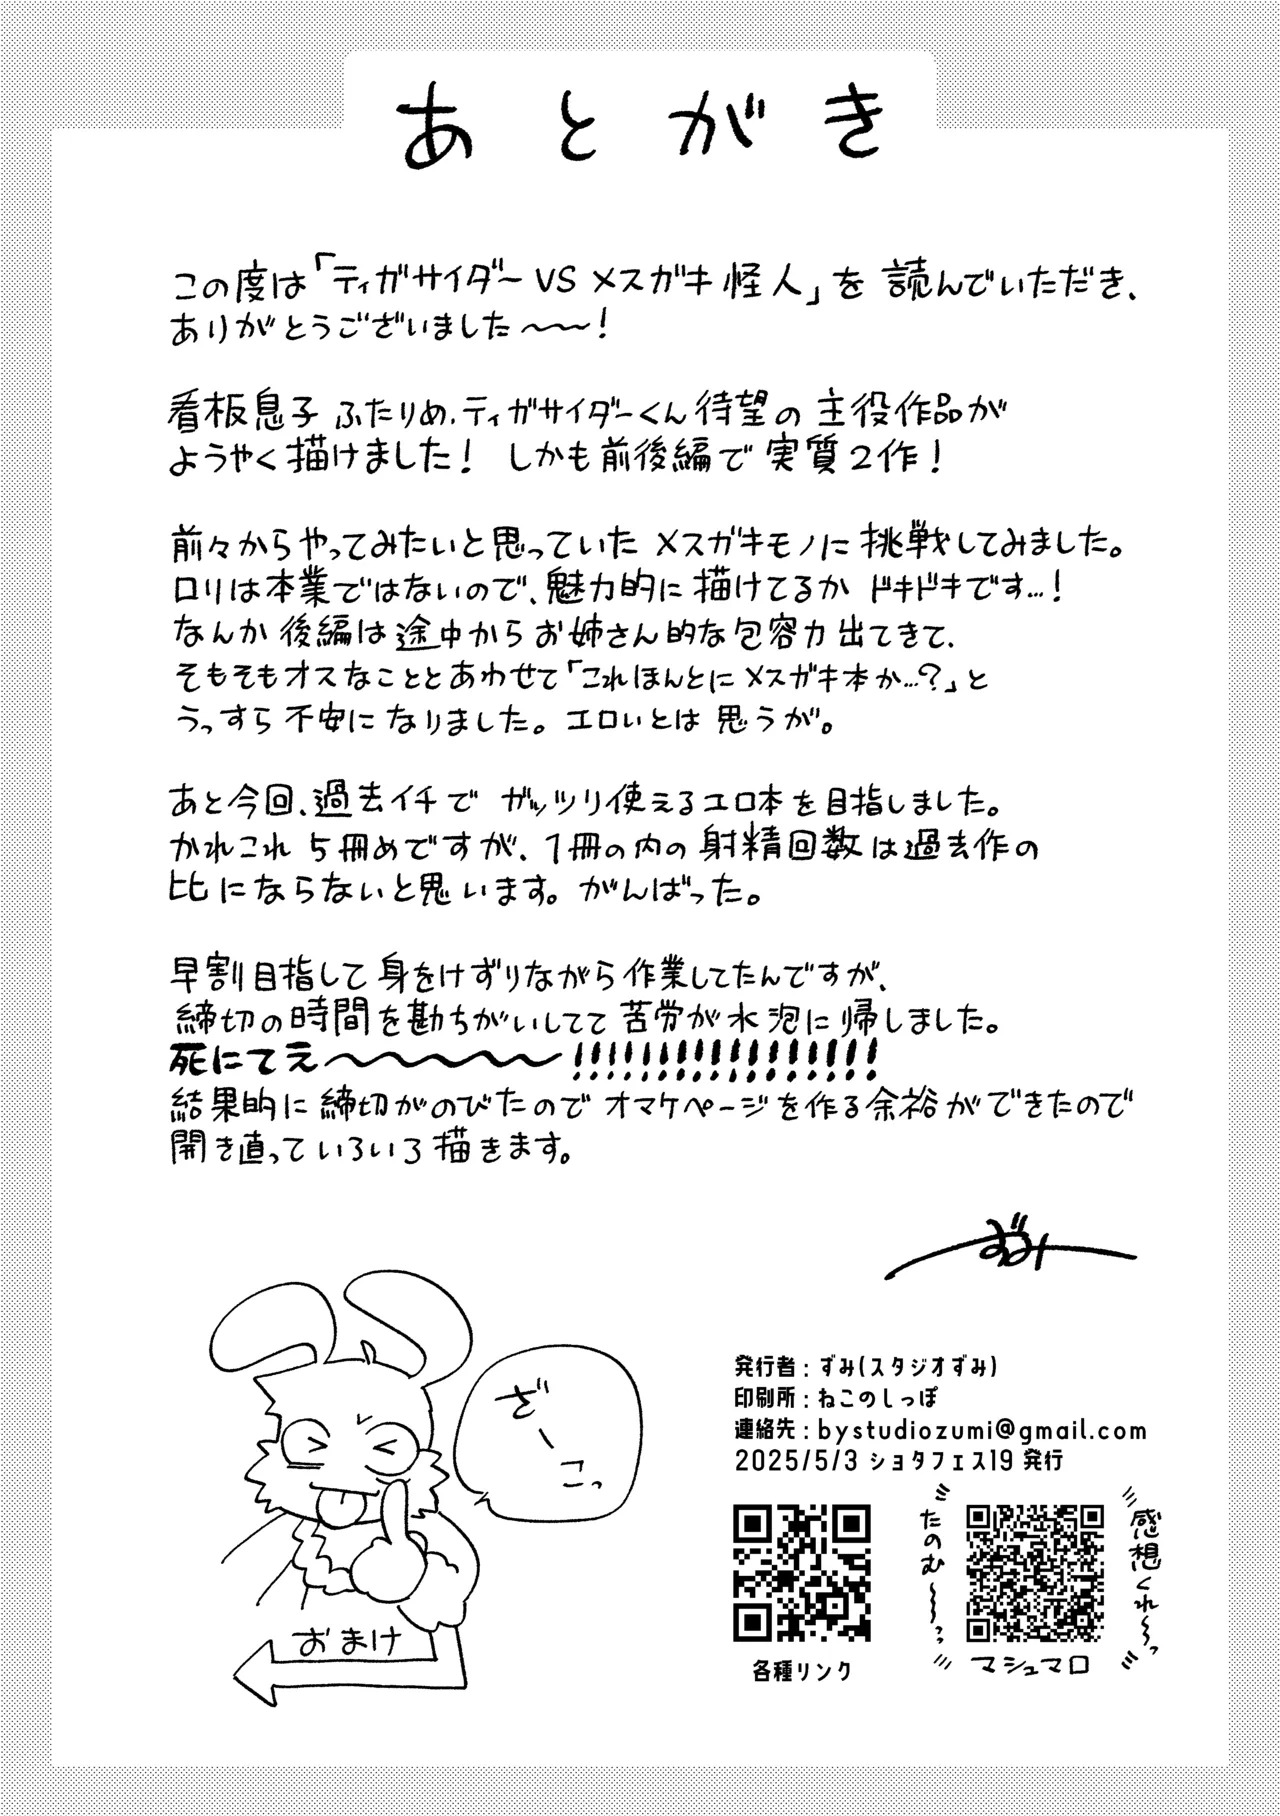 あとがき
この度は「ティガサイダーVSメスガキ怪人」を読んでいただき、
ありがとうございました～～！
看板息子ふたりめ、ティガサイダーくん待望の主役作品が
ようやく描けました！ しかも前後編で実質2作！
前々からやってみたいと思っていたメスガキモノに挑戦してみました。
ロリは本業ではないので、魅力的に描けてるかドキドキです…！
なんか後編は途中からお姉さん的な包容力出てきて、
そもそもオスなこととあわせて「これほんとにメスガキ本か…？」と
うっすら不安になりました。エロいとは思うが。
あと今回、過去イチでガッツリ使えるエロ本を目指しました。
かれこれ5冊めですが、1冊の内の射精回数は過去作の
比にならないと思います。がんばった。
早割目指して身をけずりながら作業してたんですが、
締切の時間を勘ちがいしてて苦労が水泡に帰しました。
死にてえ～～～～～!!!!!!!!!!!!!!!!!!
結果的に締切がのびたのでオマケページを作る余裕ができたので
開き直っていろいろ描きます。
ずみ
ざーこっ
おまけ
発行者：ずみ(スタジオずみ)
印刷所：ねこのしっぽ
連絡先：bystudiozumi@gmail.com
2025/5/3 ショタフェス19 発行
各種リンク
感想くれ～っ
たのむ～～っ
マシュマロ